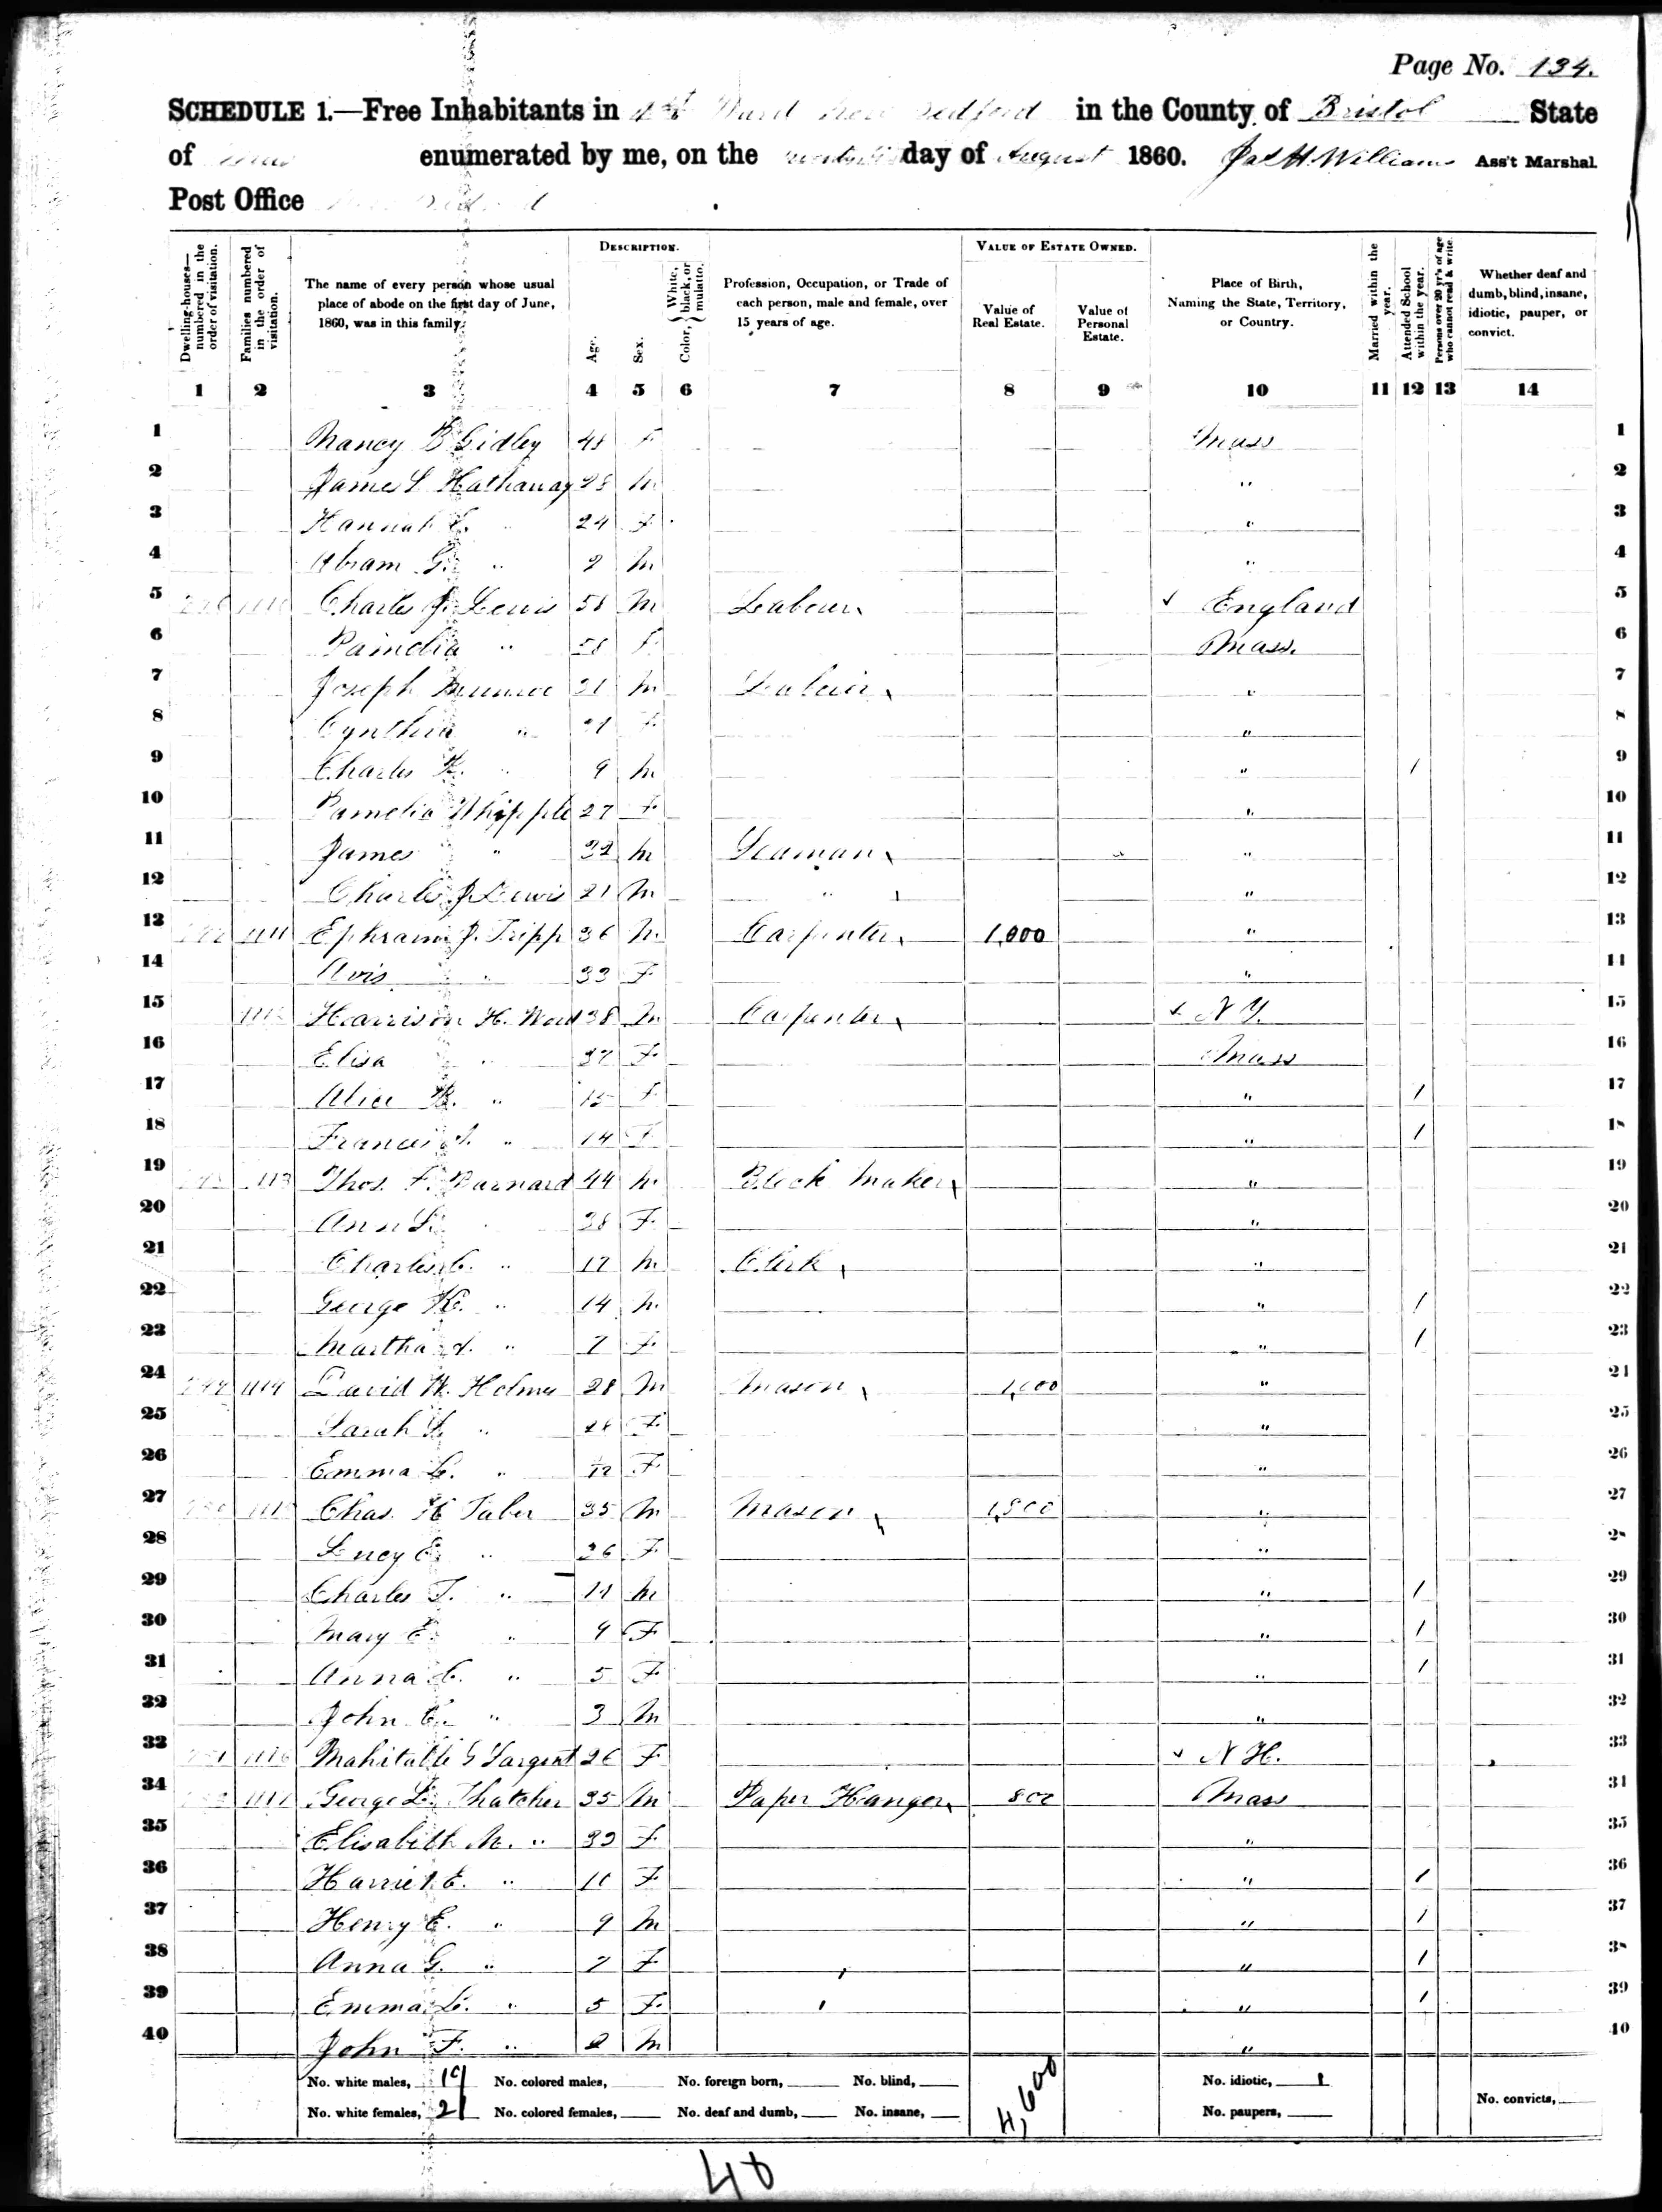 Page No. 134.
SCHEDULE 1.—Free Inhabitants in 4th Ward New Bedford in the County of Bristol State
of Mass enumerated by me, on the day of August 1860. Jas H. Williams Ass't Marshal.
Post Office New Bedford
Dwelling-houses—numbered in the order of visitation.
Families numbered in the order of visitation.
The name of every person whose usual place of abode on the first day of June, 1860, was in this family.
DESCRIPTION.
Age.
Sex.
Color, { White, black, or mulatto.
Profession, Occupation, or Trade of each person, male and female, over 15 years of age.
VALUE OF ESTATE OWNED.
Value of Real Estate.
Value of Personal Estate.
Place of Birth, Naming the State, Territory, or Country.
Married within the year.
Attended School within the year.
Persons over 20 yr's of age who cannot read & write.
Whether deaf and dumb, blind, insane, idiotic, pauper, or convict.
1 2 3 4 5 6 7 8 9 10 11 12 13 14
1 Nancy B Gidley 48 F Mass 1
2 James L Hathaway 28 M " 2
3 Hannah C. " 24 F " 3
4 Abram G. " 2 M " 4
5 Charles J. Lewis 58 M Labour England 5
6 Pamelia " 58 F Mass. 6
7 Joseph M " 7
8 Cynthia " F " 8
9 Charles " 9 M " / 9
10 Pamelia Whipple 27 F " 10
11 James " 32 M Seaman " 11
12 Charles J Lewis 21 M " " 12
13 1111 Ephraim J. Tripp 36 M Carpenter 1,000 " 13
14 Avis " 33 F " 14
15 1112 Harrison H. 38 M Carpenter N Y. 15
16 Elisa " 37 F Mass 16
17 Alice " 15 F " / 17
18 " 14 F " / 18
19 1113 Thos. F. Barnard 44 M Block Maker " 19
20 Ann L. " 38 F " 20
21 Charles C. " 17 M Clerk " 21
22 George " 14 M " / 22
23 Martha " 7 F " / 23
24 1114 David W. Holmes 28 M Mason 1,000 " 24
25 Sarah " 28 F " 25
26 Emma L. " F " 26
27 1115 Chas. H Taber 35 M Mason 1,800 " 27
28 Lucy E. " 36 F " 28
29 Charles T. " 11 M " / 29
30 Mary E. " 9 F " / 30
31 Anna C. " 5 F " / 31
32 John E. " 3 M " 32
33 1116 Mahitable G Sargent 26 F N H. 33
34 1117 George L. Thatcher 35 M Paper Hanger 800 Mass 34
35 Elisabeth M. " 33 F " 35
36 Harriet E. " F " / 36
37 Henry E. " 9 M " / 37
38 Anna G. " 7 F " / 38
39 Emma L. " 5 F " / 39
40 John F. " 2 M " 40
No. white males, 19 No. colored males, No. foreign born, No. blind, 4,600 No. idiotic, 1
No. white females, 21 No. colored females, No. deaf and dumb, No. insane, No. paupers, No. convicts,
40